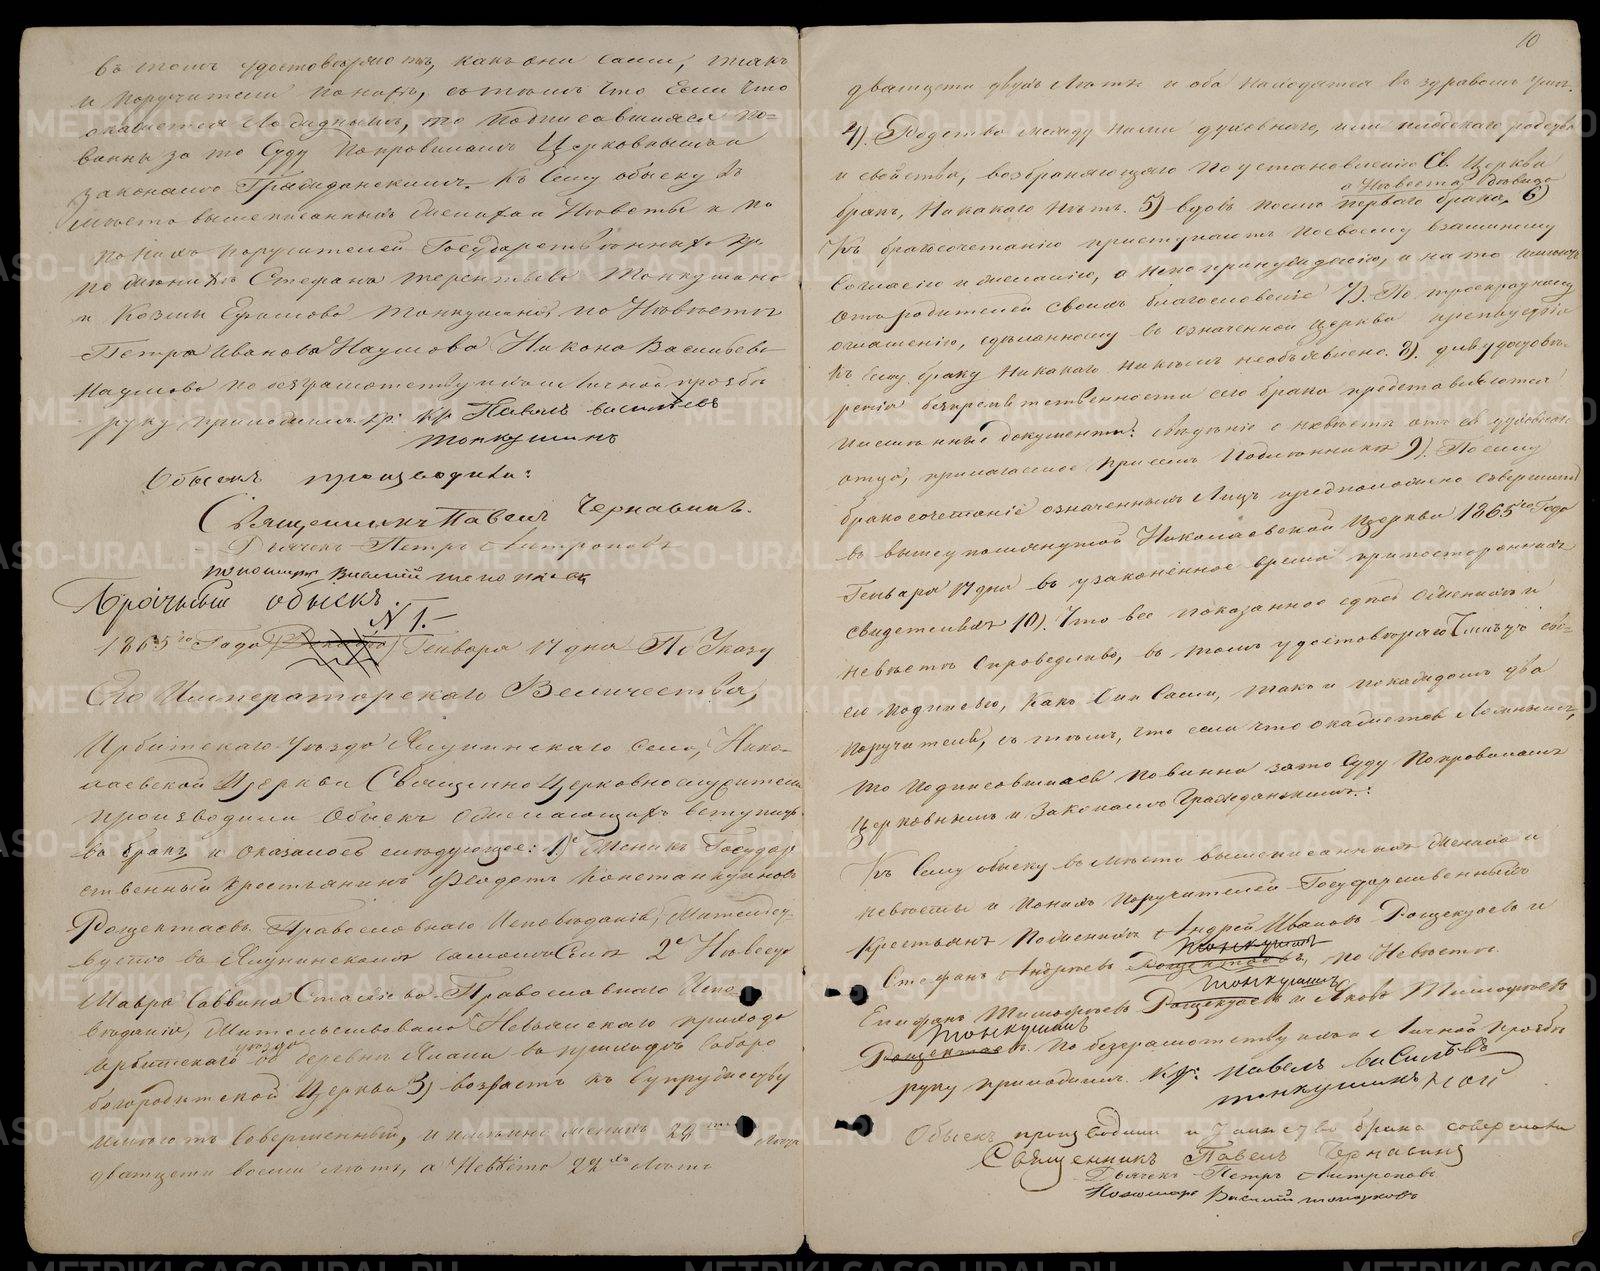 въ томъ удостовѣряютъ, какъ они сами, такъ
и поручители по нихъ, съ тѣмъ что если что
окажется ложнымъ, то подписавшіеся по-
винны за то Суду по правиламъ Церковнымъ и
законамъ Гражданскимъ. Къ сему обыску въ
мѣсто вышеписанныхъ жениха и Невѣсты и по
по нихъ поручителей Государственныхъ кр.
по женихѣ Стефана Терентьева Топкушина
и Козмы Ефимова Топкушина по Невѣсте
Петра Иванова Наумова Никона Васильева
Наумова по безграмотству ихъ и личной прозбѣ
руку приложилъ кр. Павелъ Васильевъ
Топкушинъ
Обыскъ производили:
Священникъ Павелъ Чернавинъ.
Дьячекъ Петръ Антроповъ
пономарь Василій
Брачный обыскъ.
N 1.-
1865го Года Генваря 17 дня По Указу
Его Императорскаго Величества,
Ирбитскаго уѣзда села, Нико-
лаевской Церкви Священно церковнослужители
производили Обыскъ о желающихъ вступить
въ бракъ и оказалось слѣдующее: 1) Женихъ Государ
ственный крестьянинъ Феодотъ
Православнаго Исповѣданія, жительст-
вуетъ въ самомъ Селѣ 2е Невѣста
Мавра Саввина Православнаго Испо
вѣданія, Жительствовала Невьянскаго прихода
Ирбитскаго уѣзда въ деревнѣ въ приходѣ Собаро
богородитской Церкви 3) возрастъ къ Супружеству
имѣютъ совершенный, и именно женихъ 28мь
дватцети восьми лѣтъ, а Невѣста 22хъ лѣтъ
10
дватцети двухъ лѣтъ и оба находятся въ здравомъ умѣ.
4). Родства между ними духовнаго, или плотскаго родства
и свойства, возбраняющаго по установленію Св. Церкви
а Невѣста
бракъ, никакаго нѣтъ. 5) вдовъ послѣ перваго брака, 6)
Къ бракосочетанію приступаютъ по своему взаимному
согласію и желанію, а не по принужденію, и на то имѣютъ
отъ родителей своихъ благословеніе 7). По троекратному
оглашенію, сдѣланному въ означенной церкви препятствія
къ сему браку никакаго никѣмъ необъявлено. 8). для удостовѣ-
ренія безпрепятственности сего брака представляются
письменные документы: свѣдѣніе о невѣстѣ отъ ея духовнаго
отца, прилагаемое при семъ подлинникѣ 9). Посему
бракосочетаніе означенныхъ лицъ предположено совершить
въ вышеупомянутой Николаевской церкви 1865го Года
Генваря 17 дня въ узаконенное время при постороннихъ
свидетеляхъ 10). Что все показанное здѣсь о женихѣ и
невѣстѣ справедливо, въ томъ удостовѣряютъ
подписью, какъ они сами, такъ и по каждомъ два
поручителя, съ тѣмъ, что если что окажется ложнымъ,
то подписавшіеся повинны за то Суду по правиламъ
Церковнымъ и Законамъ Гражданскимъ.:
Къ сему обыску въ мѣсто вышеписанныхъ жениха и
невѣсты и по нихъ поручителей Государственныхъ
крестьянъ по женихѣ Андрей Ивановъ и
Топкушинъ
Стефанъ Андреевъ по Невѣсте
Топкушинъ
Епифанъ Тимофеевъ и Яковъ Тимофеевъ
Топкушинъ
по безграмотству ихъ и личной прозбѣ
руку приложилъ кр: Павелъ Васильевъ
топкушинъ
Обыскъ производили и таинство брака совершали
Священникъ Павелъ Чернавинъ
Дьячекъ Петръ Антроповъ
Пономарь Василій